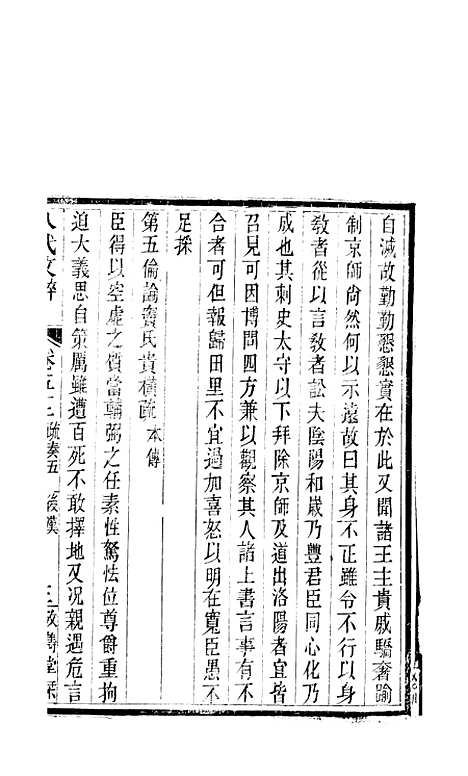 自滅故勤勤懇懇實在於此又聞諸王主貴戚驕奢踰
制京師尙然何以示遠故曰其身不正雖令不行以身
敎者從以言敎者訟夫陰陽和歲乃豐君臣同心化乃
成也其刺史太守以下拜除京師及道出洛陽者宜皆
召見可因博問四方兼以觀察其人諸上書言事有不
合者可但報歸田里不宜過加喜怒以明在寬臣愚不
足採
第五倫論竇氏貴橫疏 本傳
臣得以空虛之質當輔弼之任素性駑怯位尊爵重拘
迫大義思自策厲雖遭百死不敢擇地又況親遇危言
八代文粹 卷五十 疏奏五 後漢